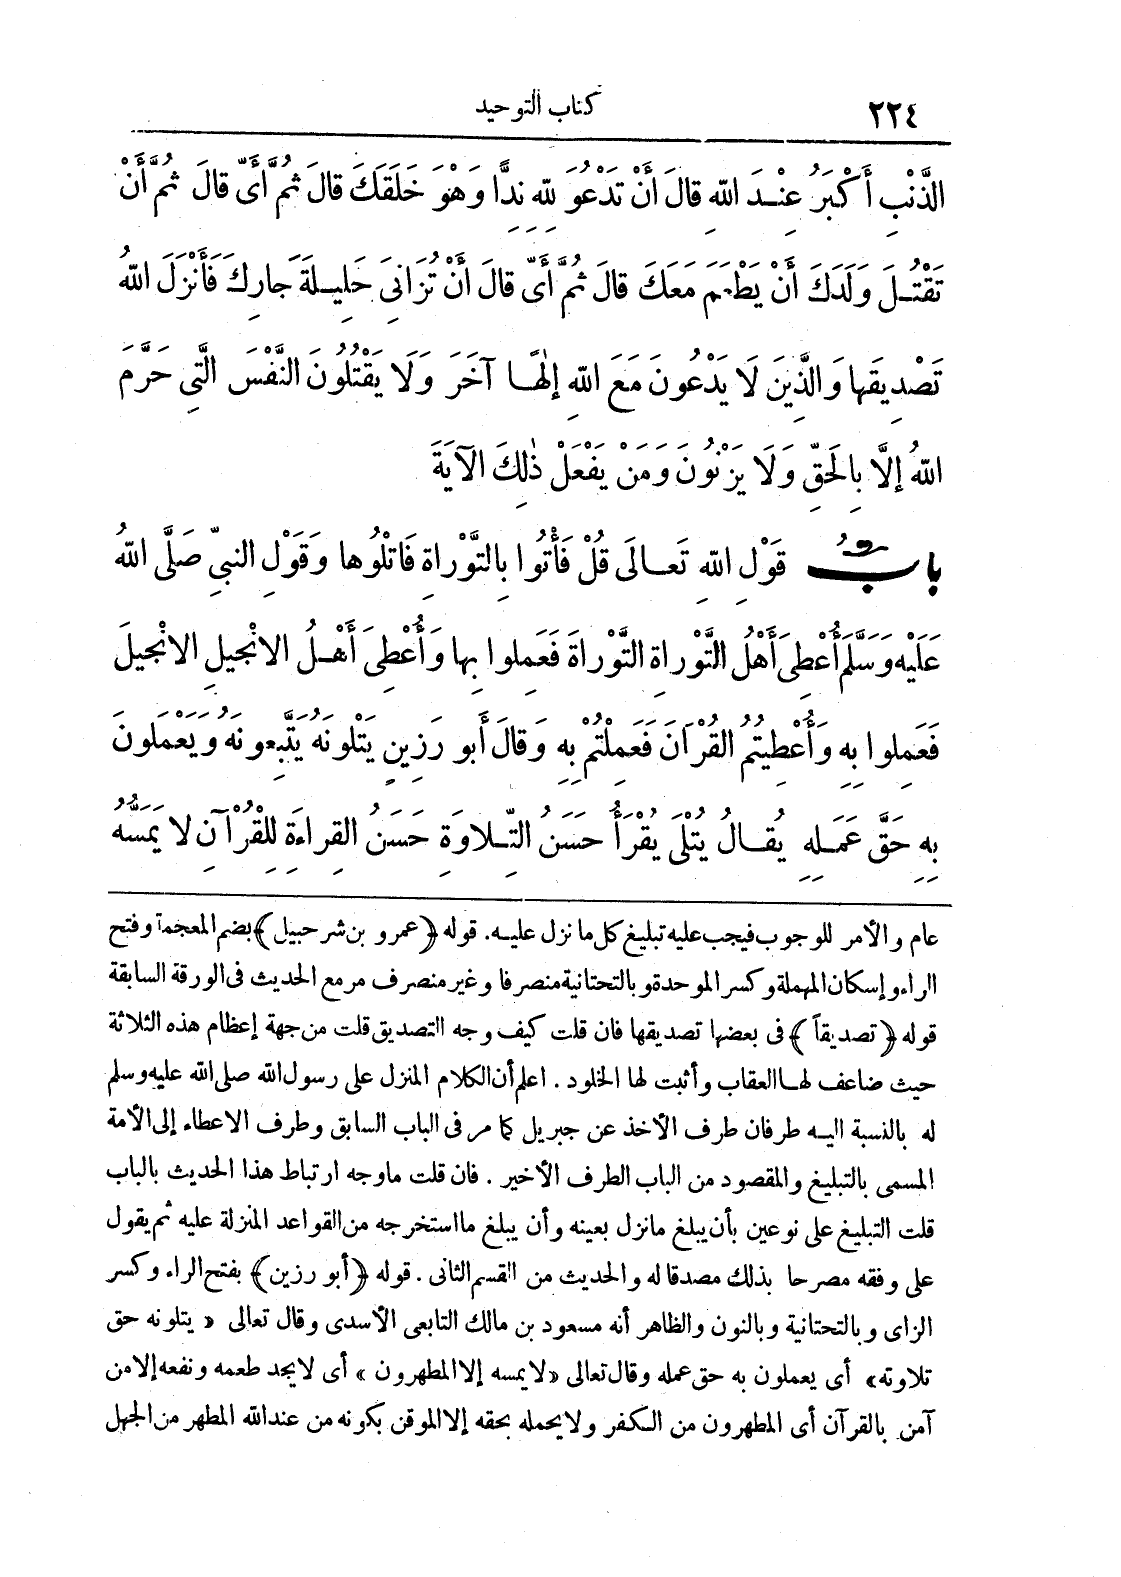 ٢٢٤ كتاب التوحيد
الذَّنْبِ أَكْبَرُ عِنْدَ اللّهِ قالَ أَنْ تَدْعُوَ لِلّهِ نِدًّا وَهْوَ خَلَقَكَ قالَ ثُمَّ أَىّ قالَ ثُمَّ أَنْ
تَقْتُلَ وَلَدَكَ أَنْ يَطْعَمَ مَعَكَ قالَ ثُمَّ أَىّ قالَ أَنْ تُزَانِىَ حَلِيلَةَ جارِكَ فَأَنْزَلَ اللّهُ
تَصْدِيقَها وَالَّذِينَ لَا يَدْعُونَ مَعَ اللّهِ إِلٰهًا آخَرَ وَلَا يَقْتُلُونَ النَّفْسَ الَّتِى حَرَّمَ
اللّهُ إِلَّا بِالحَقِّ وَلَا يَزْنُونَ وَمَنْ يَفْعَلْ ذٰلِكَ الآيَةَ
بابٌ قَوْلِ اللّهِ تَعالَى قُلْ فَأْتُوا بِالتَّوْراةِ فَاتْلُوها وَقَوْلِ النبىِّ صَلَّى اللّهُ
عَلَيْهِ وَسَلَّمَ أُعْطِىَ أَهْلُ التَّوْراةِ التَّوْراةَ فَعَمِلوا بِها وَأُعْطِىَ أَهْلُ الانْجيلِ الانْجيلَ
فَعَمِلوا بِهِ وَأُعْطِيتُمُ القُرْآنَ فَعَمِلْتُمْ بِهِ وَقالَ أَبو رَزِينٍ يَتْلونَهُ يَتَّبِعونَهُ وَيَعْمَلونَ
بِهِ حَقَّ عَمَلِهِ يُقالُ يُتْلَى يُقْرَأُ حَسَنُ التِّلاوَةِ حَسَنُ القِراءَةِ لِلْقُرْآنِ لا يَمَسُّهُ
عام والأمر للوجوب فيجب عليه تبليغ كل ما نزل عليه. قوله ﴿عمرو بن شرحبيل﴾ بضم المعجمة وفتح
الراء وإسكان المهملة وكسر الموحدة وبالتحتانية منصرفا وغير منصرف مر مع الحديث فى الورقة السابقة
قوله ﴿تصديقاً﴾ فى بعضها تصديقها فان قلت كيف وجه التصديق قلت من جهة إعظام هذه الثلاثة
حيث ضاعف لها العقاب وأثبت لها الخلود . اعلم أن الكلام المنزل على رسول الله صلى الله عليه وسلم
له بالنسبة اليه طرفان طرف الأخذ عن جبريل كما مر فى الباب السابق وطرف الاعطاء إلى الأمة
المسمى بالتبليغ والمقصود من الباب الطرف الأخير . فان قلت ماوجه ارتباط هذا الحديث بالباب
قلت التبليغ على نوعين بأن يبلغ مانزل بعينه وأن يبلغ مااستخرجه من القواعد المنزلة عليه ثم يقول
على وفقه مصرحا بذلك مصدقا له والحديث من القسم الثانى . قوله ﴿أبو رزين﴾ بفتح الراء وكسر
الزاى وبالتحتانية وبالنون والظاهر أنه مسعود بن مالك التابعى الأسدى وقال تعالى «يتلونه حق
تلاوته» أى يعملون به حق عمله وقال تعالى «لايمسه إلا المطهرون» أى لايجد طعمه ونفعه إلا من
آمن بالقرآن أى المطهرون من الكفر ولايحمله بحقه إلا الموقن بكونه من عند الله المطهر من الجهل